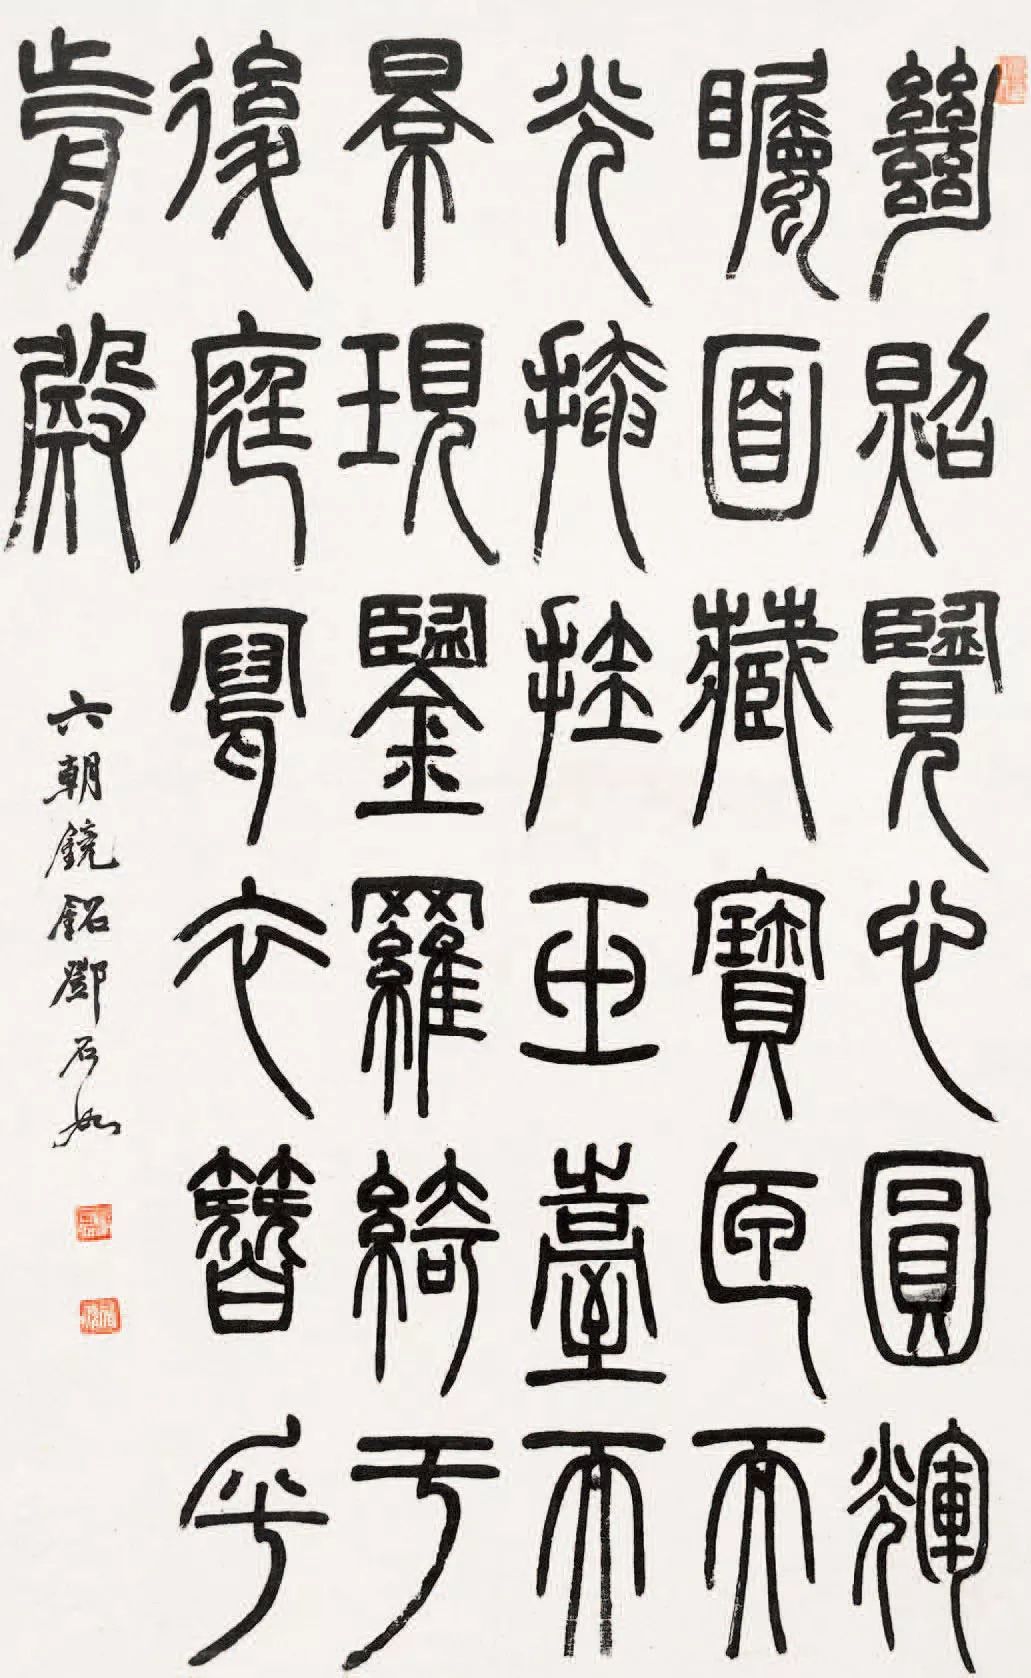 絕照覽心圓輝
矚面藏寶匣而
光掩挂玉臺而
景現鑒羅綺于
後庭寫衣簪乎
前殿
六朝鏡銘鄧石如